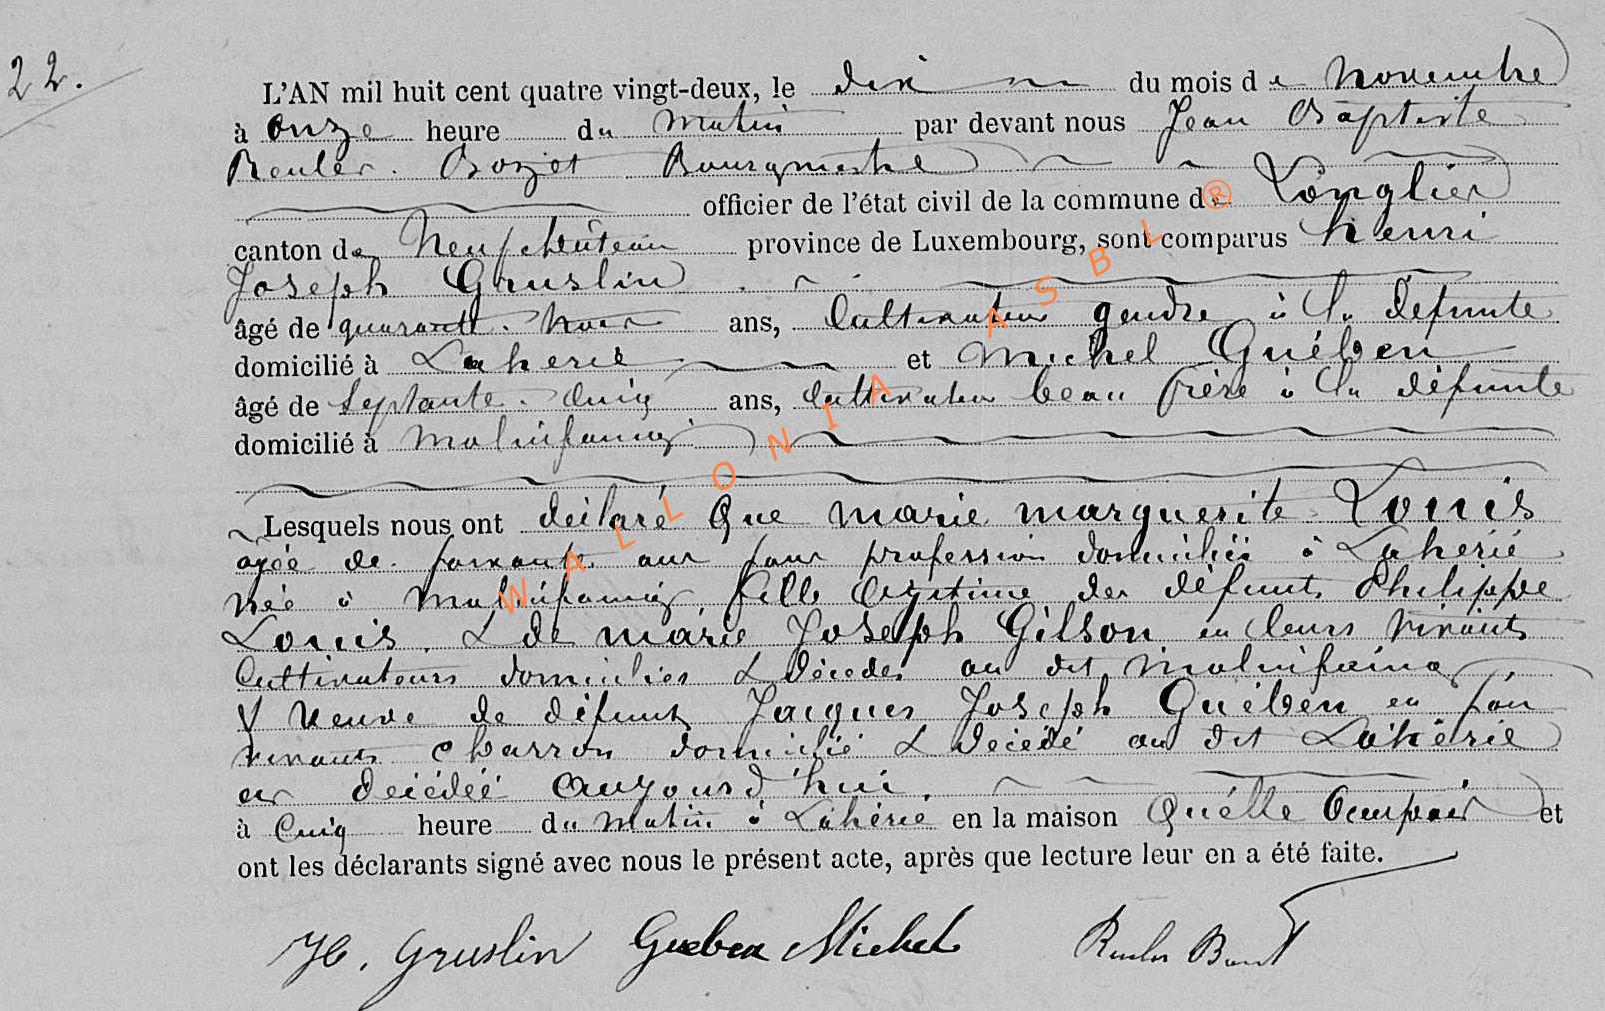 22.
L'AN mil huit cent quatre vingt-deux, le dix du mois de Novembre
à onze heure du Matin par devant nous Jean Baptiste
Reuler. Bozet Bourgmestre
officier de l'état civil de la commune de Longlier
canton de Neufchâteau province de Luxembourg, sont comparus henri
Joseph Gruslin
âgé de quarante ans, Cultivateur gendre à la défunte
domicilié à Laherie et Michel Guében
âgé de Septante. Cinq ans, Cultivateur beau frère à la défunte
domicilié à Molinfaing
Lesquels nous ont déclaré Que marie marguerite Louis
agée de ans sans profession domiciliée à Laherié
née à Molinfaing, fille légitime des défunts Philippe
Louis. & de marie Joseph Gilson en leurs vivants
Cultivateurs domiciliés & décédés au dit molinfaing
& veuve de défunt Jacques Joseph Guében en son
vivant charron domicilié & décédé au dit Lahérie
est décédée aujourd'hui.
à Cinq heure du Matin à Lahérie en la maison Qu'élle Occupait et
ont les déclarants signé avec nous le présent acte, après que lecture leur en a été faite.
H. Gruslin Gueben Michel
WALLONIA ASBL ®